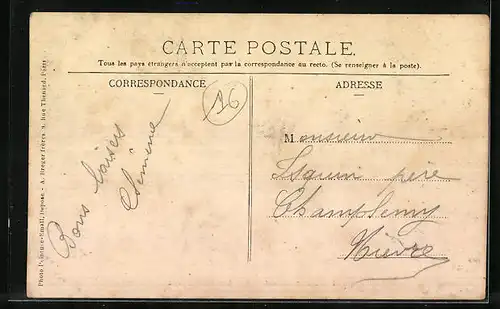 CARTE POSTALE.
Tous les pays étrangers n'acceptent pas la correspondance au recto. (Se renseigner à la poste).
CORRESPONDANCE
ADRESSE
16
Bons baisers
Monsieur
père
Champlemy
Nièvre
Dépose - A. Breger frères 9, Rue Thénard, Paris